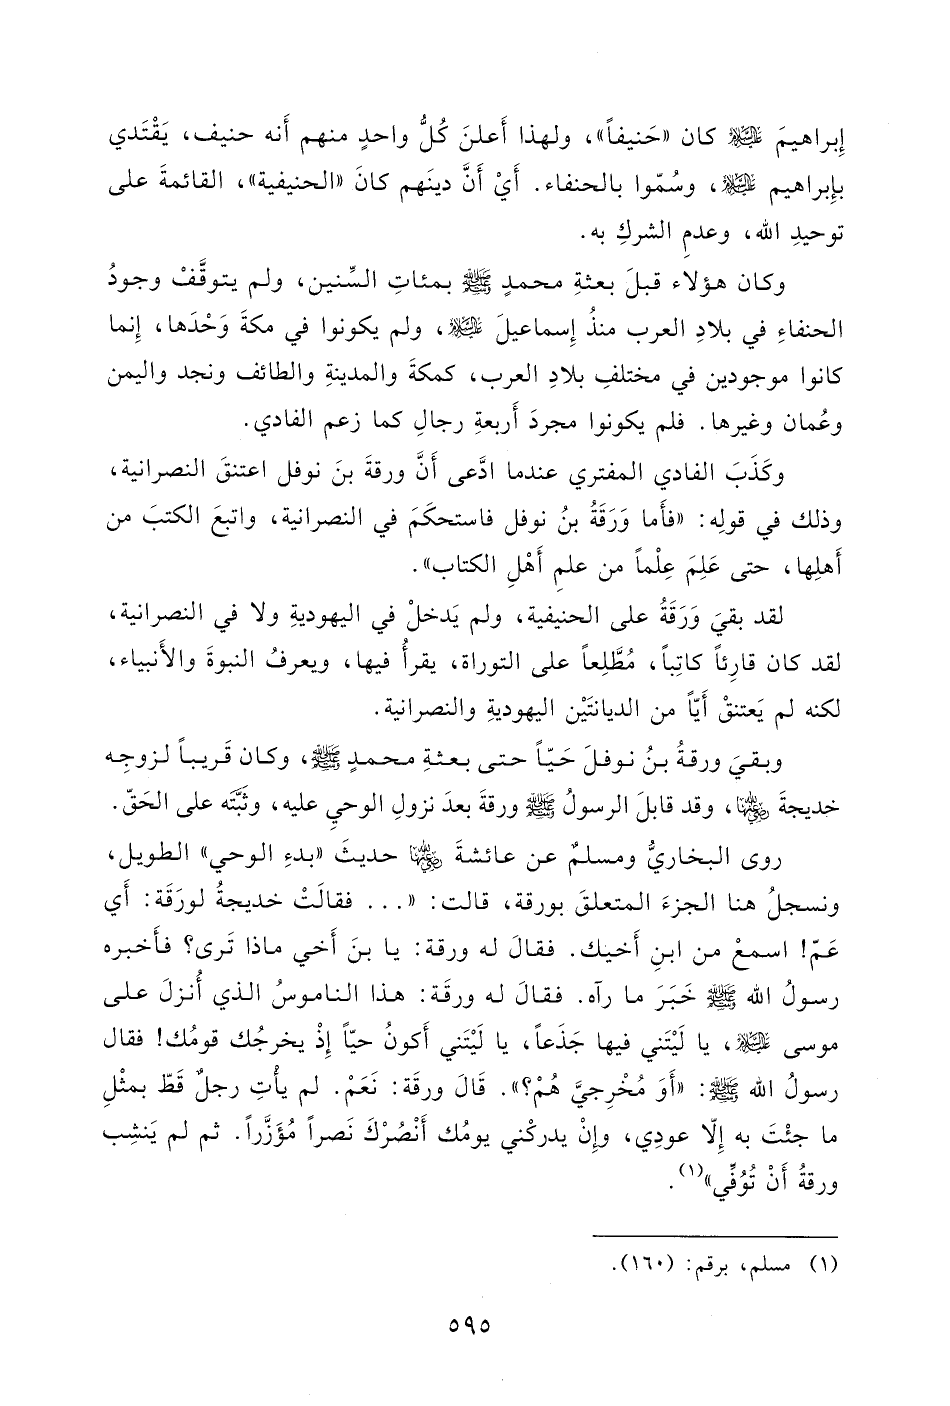 إِبراهيمَ عليه السلام كان «حَنيفاً»، ولهذا أَعلنَ كُلُّ واحدٍ منهم أَنه حنيف، يَقْتَدي
بإِبراهيم عليه السلام، وسُمّوا بالحنفاء. أَيْ أَنَّ دينَهم كانَ «الحنيفية»، القائمةَ على
توحيدِ الله، وعدمِ الشركِ به.
وكان هؤلاء قبلَ بعثةِ محمدٍ ﷺ بمئاتِ السِّنين، ولم يتوقَّفْ وجودُ
الحنفاءِ في بلادِ العرب منذُ إِسماعيلَ عليه السلام، ولم يكونوا في مكةَ وَحْدَها، إِنما
كانوا موجودين في مختلفِ بلادِ العرب، كمكةَ والمدينةِ والطائف ونجد واليمن
وعُمان وغيرها. فلم يكونوا مجردَ أَربعةِ رجالٍ كما زعم الفادي.
وكَذَبَ الفادي المفتري عندما ادَّعى أَنَّ ورقةَ بنَ نوفل اعتنقَ النصرانية،
وذلك في قولِه: «فأَما وَرَقَةُ بنُ نوفل فاستحكَمَ في النصرانية، واتبعَ الكتبَ من
أَهلِها، حتى عَلِمَ عِلْماً من علمِ أَهْلِ الكتاب».
لقد بقيَ وَرَقَةُ على الحنيفية، ولم يَدخلْ في اليهوديةِ ولا في النصرانية،
لقد كان قارِئاً كاتِباً، مُطَّلِعاً على التوراة، يقرأُ فيها، ويعرفُ النبوةَ والأَنبياء،
لكنه لم يَعتنقْ أَيّاً من الديانتَيْن اليهوديةِ والنصرانية.
وبقيَ ورقةُ بنُ نوفلَ حَيّاً حتى بعثةِ محمدٍ ﷺ، وكان قَريباً لزوجِه
خديجةَ رضي الله عنها، وقد قابلَ الرسولُ ﷺ ورقةَ بعدَ نزولِ الوحيِ عليه، وثبَّتَه على الحَقّ.
روى البخاريُّ ومسلمٌ عن عائشةَ رضي الله عنها حديثَ «بدءِ الوحي» الطويل،
ونسجلُ هنا الجزءَ المتعلقَ بورقة، قالت: «... فقالَتْ خديجةُ لورَقَة: أَي
عَمّ! اسمعْ من ابنِ أَخيك. فقالَ له ورقة: يا بنَ أَخي ماذا تَرى؟ فأَخبره
رسولُ الله ﷺ خَبَرَ ما رآه. فقالَ له ورقة: هذا الناموسُ الذي أُنزلَ على
موسى عليه السلام، يا لَيْتَني فيها جَذَعاً، يا لَيْتَني أَكونُ حيّاً إِذْ يخرجُك قومُك! فقال
رسولُ الله ﷺ: «أَوَ مُخْرِجيَّ هُمْ؟». قَالَ ورقة: نَعَمْ. لم يأْتِ رجلٌ قَطّ بمثْلِ
ما جئْتَ به إِلّا عودِي، وإِنْ يدركْني يومُك أَنْصُرْكَ نَصراً مُؤَزَّراً. ثم لم يَنشِب
ورقةُ أَنْ تُوُفِّي»(١).
(١) مسلم، برقم: (١٦٠).
٥٩٥